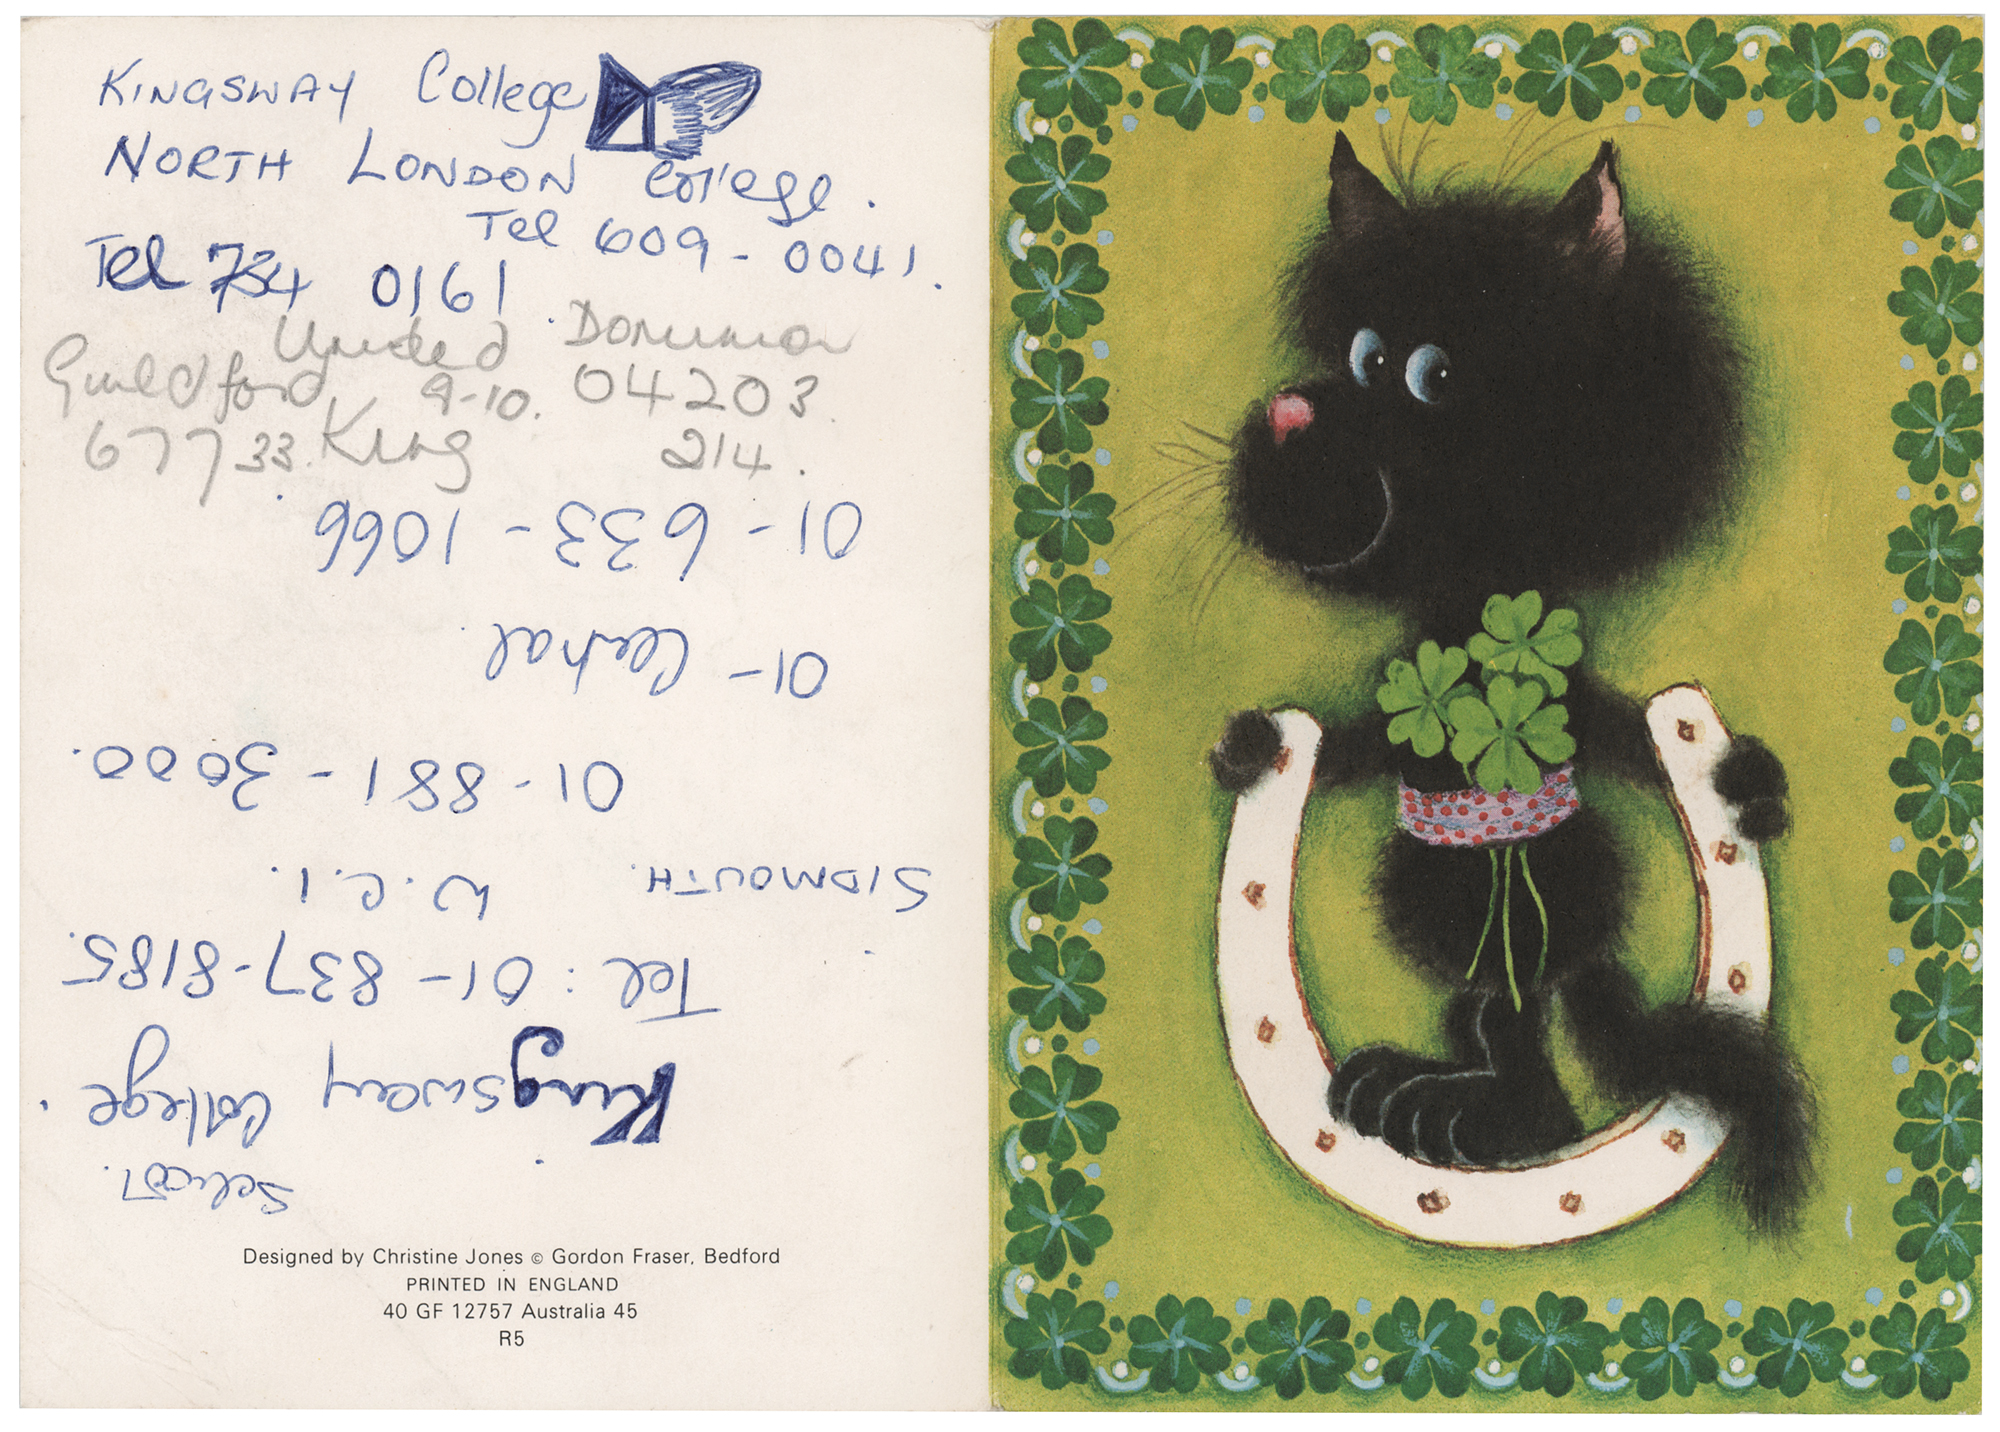 Kingsway College
North London College.
Tel 609-0041.
Tel 734 0161
United Dominion
Guildford 9-10. 04203
67733. King 214.
School.
Kingsway College.
Tel: 01-837-8185.
SIDMOUTH. W.C.1.
01-881-3000.
01- Central.
01-633-1066
Designed by Christine Jones © Gordon Fraser, Bedford
PRINTED IN ENGLAND
40 GF 12757 Australia 45
R5